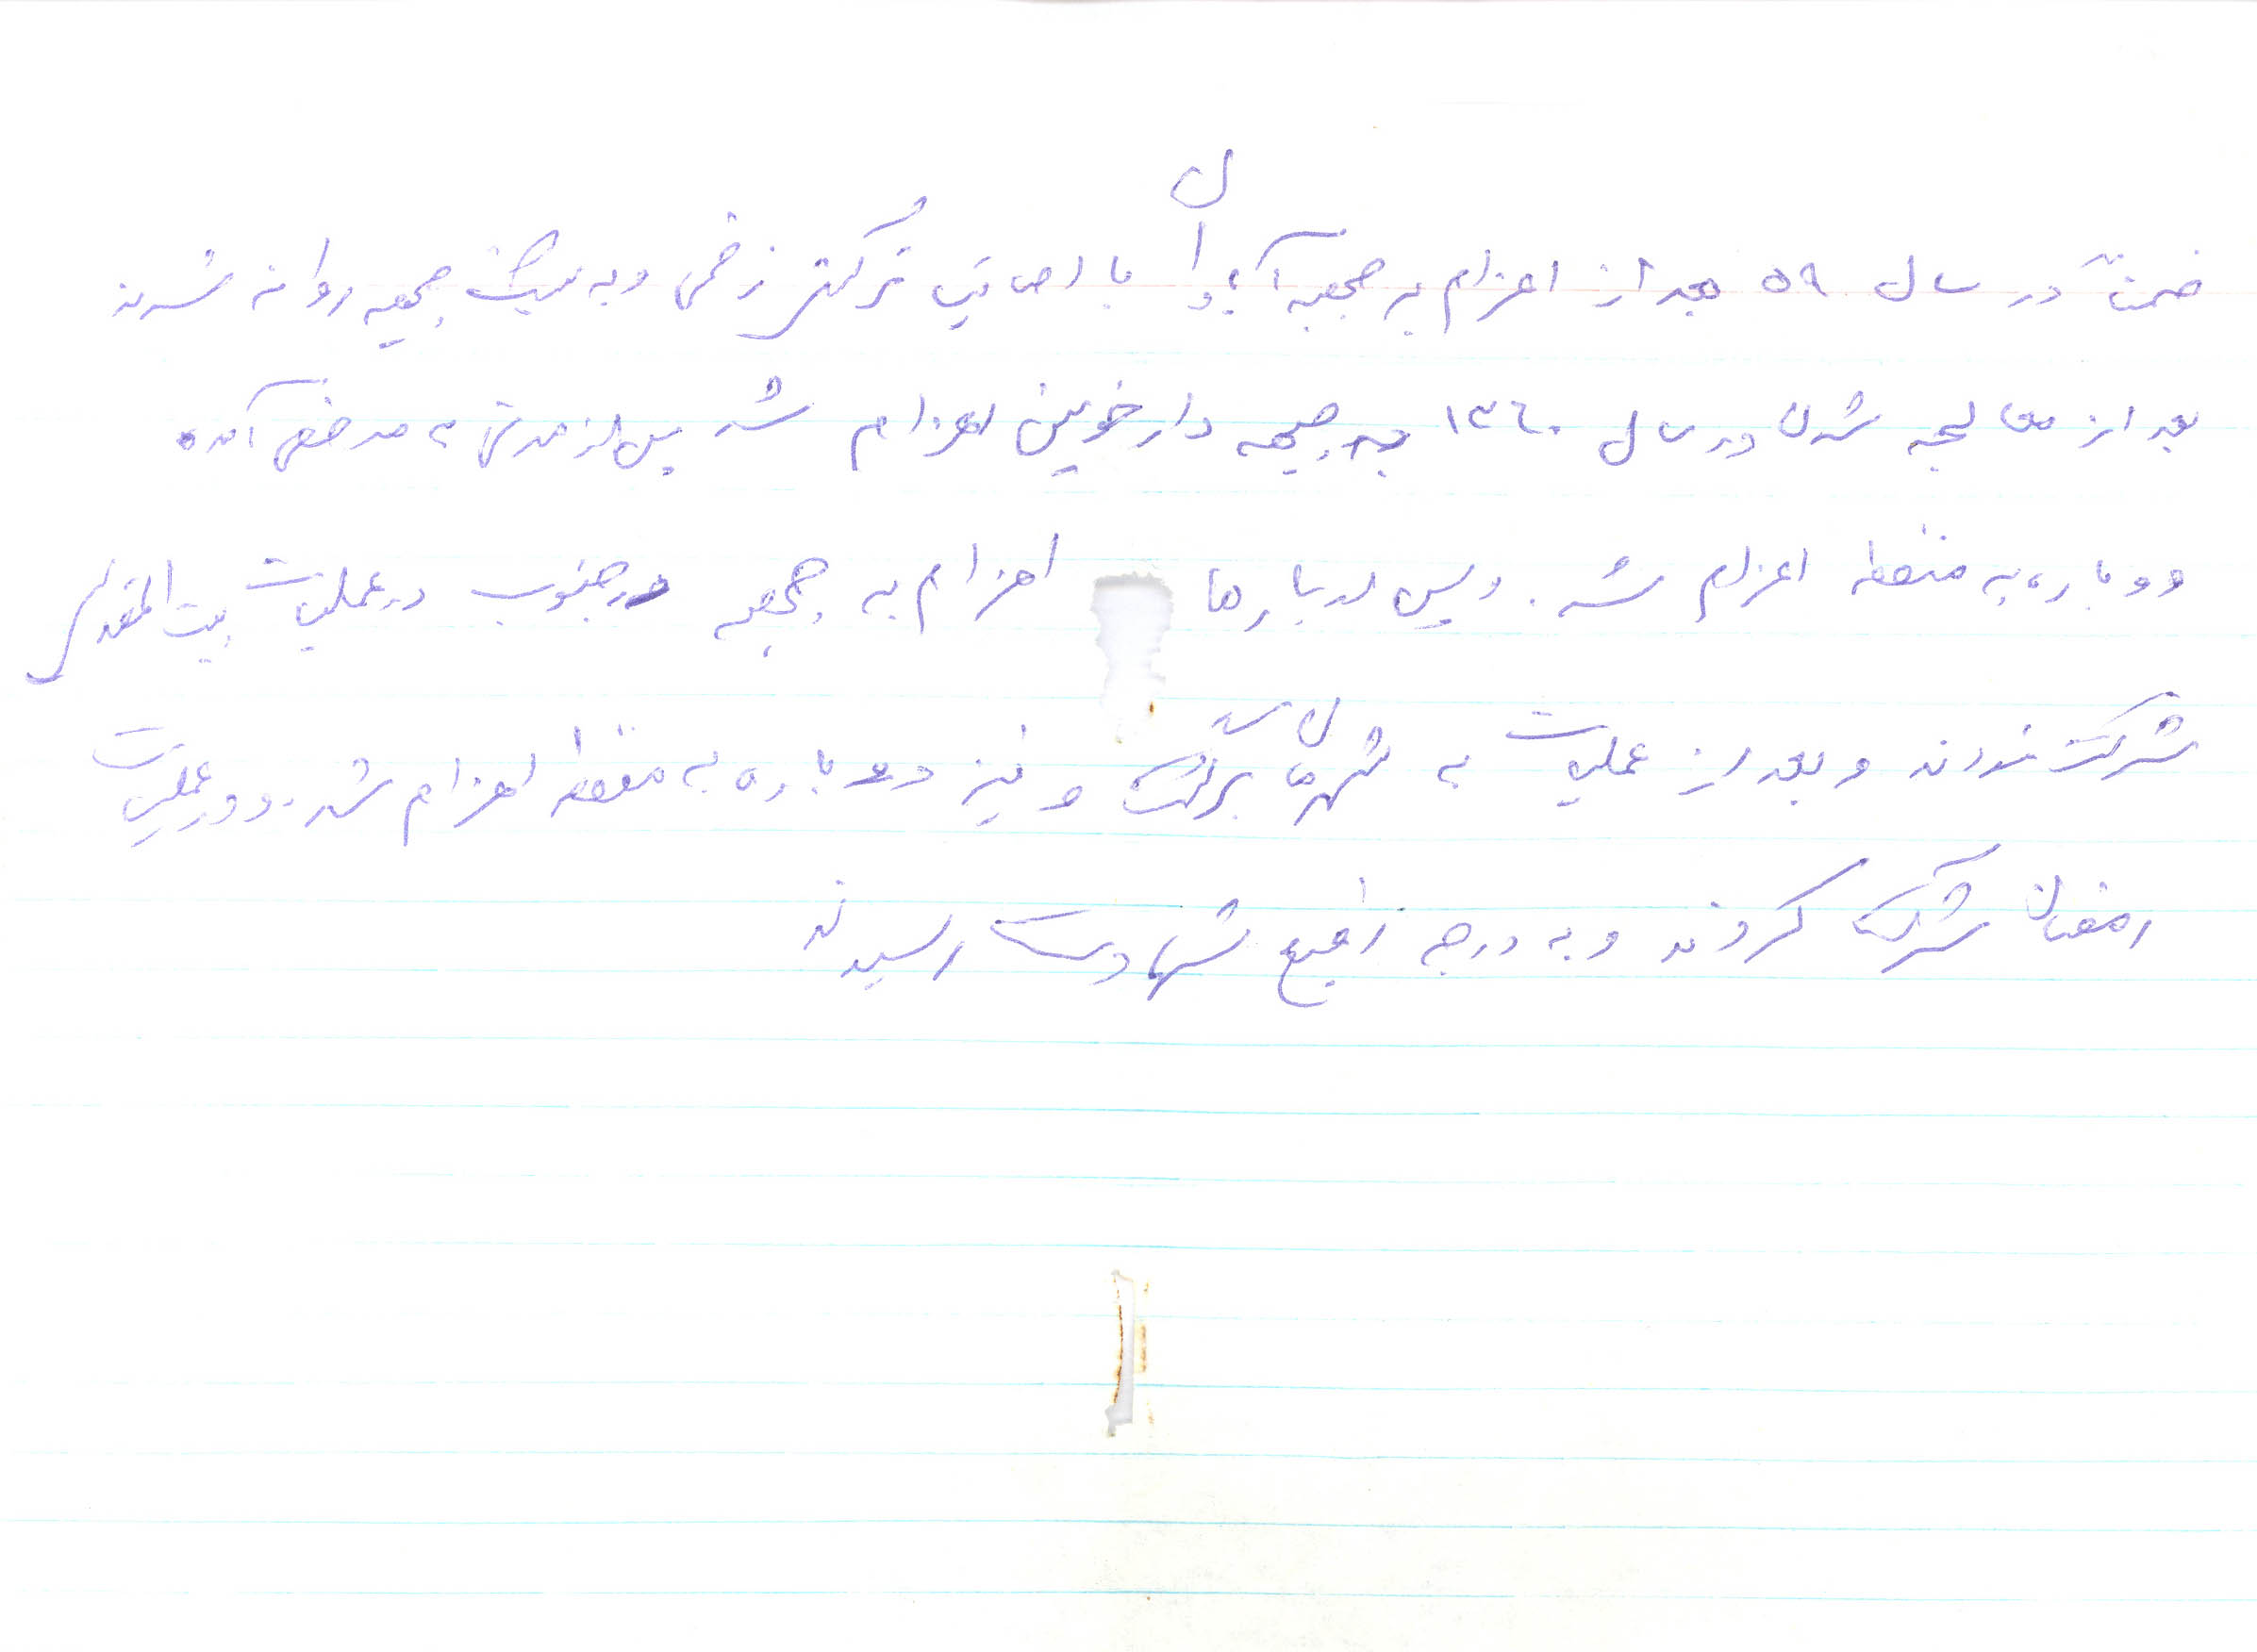 ضمناً در سال ۵۹ بعد از اعزام به جبهه آبادان با اصابت ترکش زخمی و به پشت جبهه روانه شدند
بعد از معالجه شدن در سال ۱۳۶۰ به جبهه دارخوین اعزام شد پس از مدتی به مرخصی آمده
دوباره به منطقه اعزام شد. و پس از بارها اعزام به جبهه در جنوب در عملیات بیت المقدس
شرکت نمودند و بعد از عملیات به شهرمان برگشته و نیز دوباره به منطقه اعزام شد. و در عملیات
رمضان شرکت کردند و به درجه رفیع شهادت رسیدند